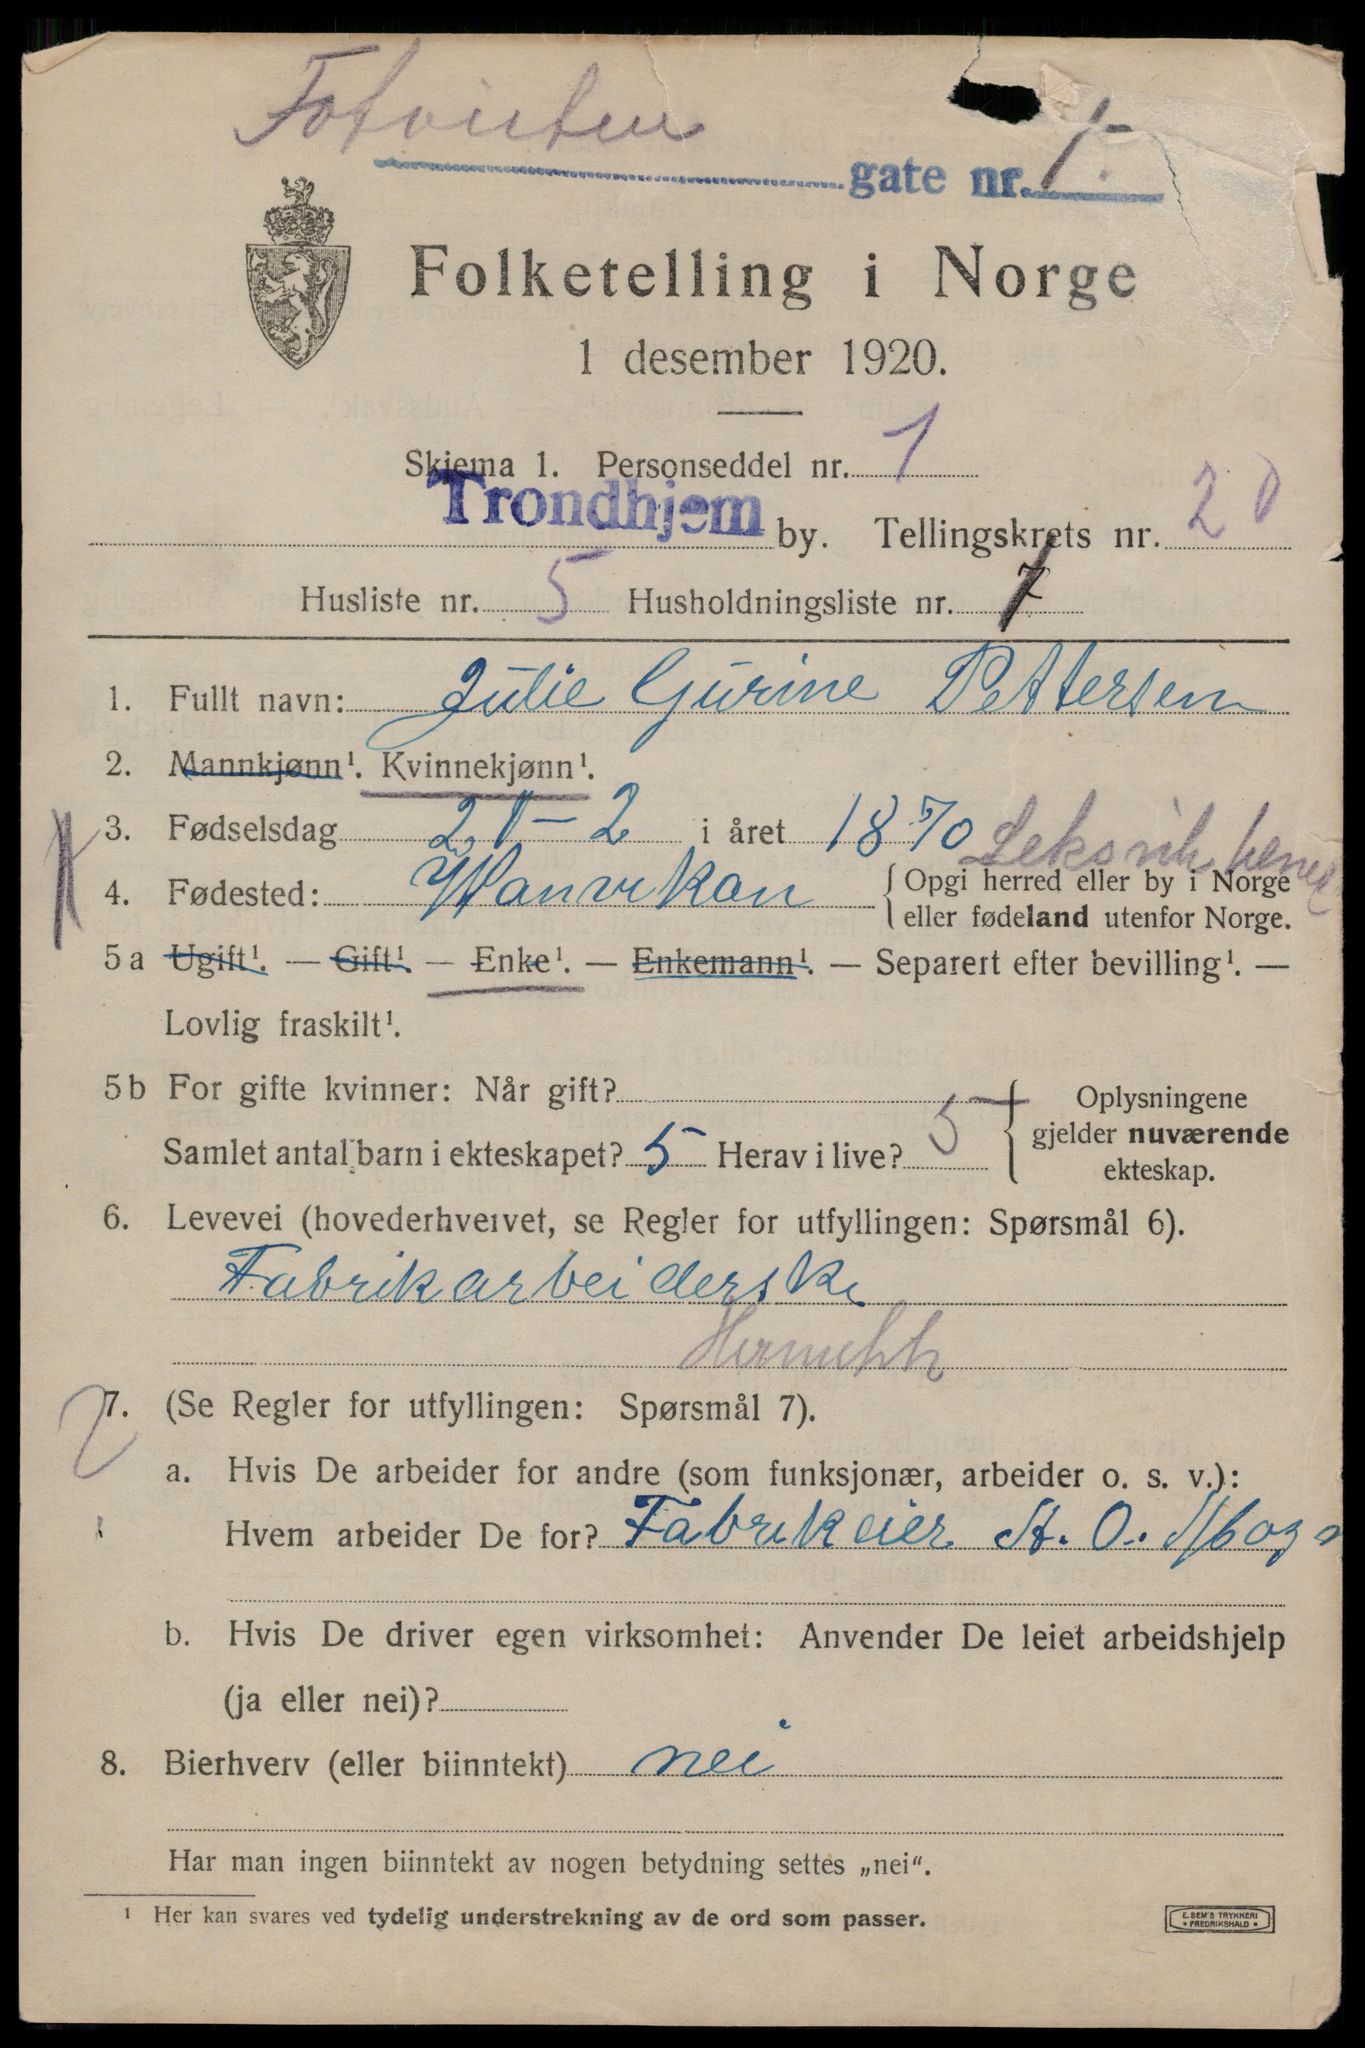 gate nr. 1.
Folketelling i Norge
1 desember 1920.
Skjema 1. Personseddel nr. 1
Trondhjem by. Tellingskrets nr. 20
Husliste nr. 5 Husholdningsliste nr. 7
1. Fullt navn: Julie Gurine Pettersen
2. Mannkjønn¹. Kvinnekjønn¹.
3. Fødselsdag 20-2 i året 1870
4. Fødested: Wanvikan Leksvik herred { Opgi herred eller by i Norge
eller fødeland utenfor Norge.
5 a Ugift¹. — Gift¹. — Enke¹. — Enkemann¹. — Separert efter bevilling¹. —
Lovlig fraskilt¹.
5 b For gifte kvinner: Når gift?
Samlet antal barn i ekteskapet? 5 Herav i live? 5
{ Oplysningene
gjelder nuværende
ekteskap.
6. Levevei (hovederhvervet, se Regler for utfyllingen: Spørsmål 6).
Fabrikarbeiderske
Hermetikk
7. (Se Regler for utfyllingen: Spørsmål 7).
a. Hvis De arbeider for andre (som funksjonær, arbeider o. s. v.):
Hvem arbeider De for? Fabrikeier
b. Hvis De driver egen virksomhet: Anvender De leiet arbeidshjelp
(ja eller nei)?
8. Bierhverv (eller biinntekt) nei
Har man ingen biinntekt av nogen betydning settes „nei“.
¹ Her kan svares ved tydelig understrekning av de ord som passer.
E. SEM'S TRYKKERI
* FREDRIKSHALD *